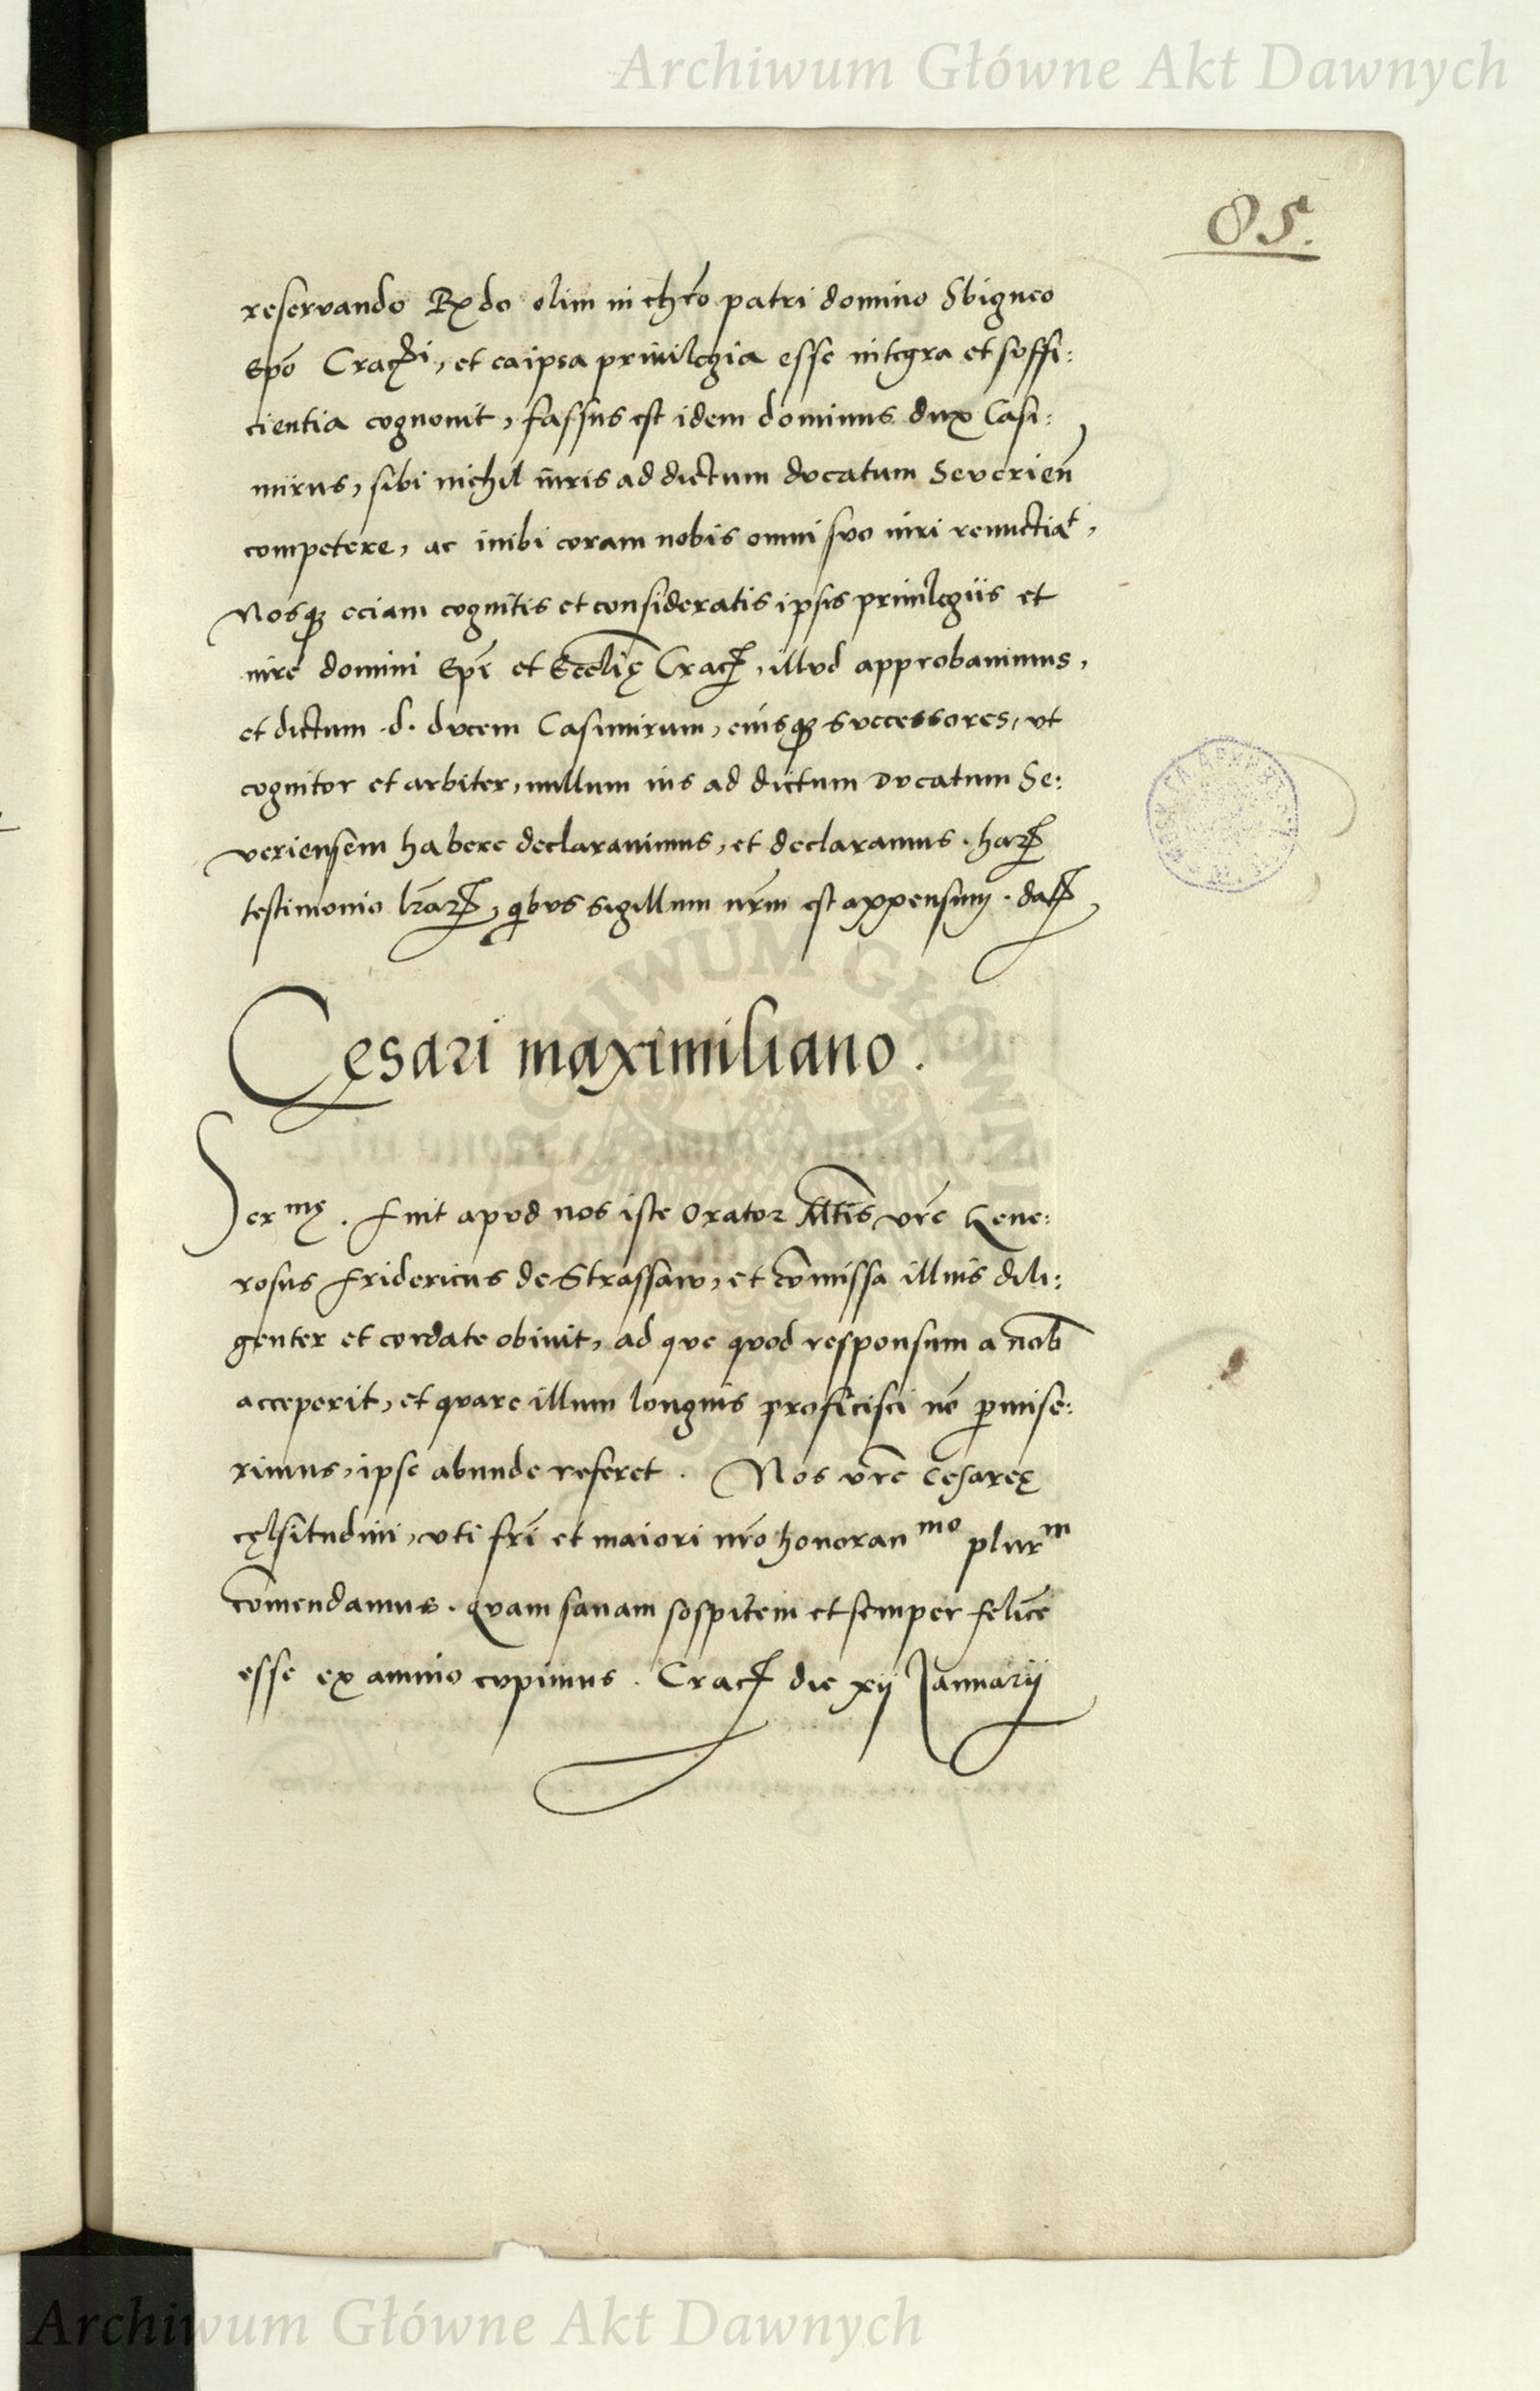 Archiwum Główne Akt Dawnych
85.
reservando Rdo olim in chro patri domino Sbigneo
Epo Craci, et ea ipsa privilegia esse integra et suffi:
cientia cognovit, fassus est idem dominus dux Casi:
mirus, sibi nichil iuris ad dictum ducatum Severien
competere, ac inibi coram nobis omni suo iuri renuctiat,
Nosq eciam cognitis et consideratis ipsis privilegiis et
iure domini Epi et Ecclię Crac, illud approbavimus,
et dictum .d. ducem Casimirum, eiusq successores, ut
cognitor et arbiter, nullum ius ad dictum Ducatum Se:
veriensem habere declaravimus, et declaramus. har
testimonio lrar, qbus sigillum nrm est appensum. dat
Cęsari maximiliano.
Sermę. Fuit apud nos iste Orator Mtis vre Gene:
rosus Fridericus de Strassaw, et comissa illius dili:
genter et cordate obivit, ad que quod responsum a nob
acceperit, et quare illum longius proficisci no pmise:
rimus, ipse abunde referet. Nos vre Cesareę
cęlsitudini, uti fri et maiori nro honoranmo plurm
comendamus. quam sanam sospitem et semper felice
esse ex animo cupimus. Crac die xij Januarij
Archiwum Główne Akt Dawnych